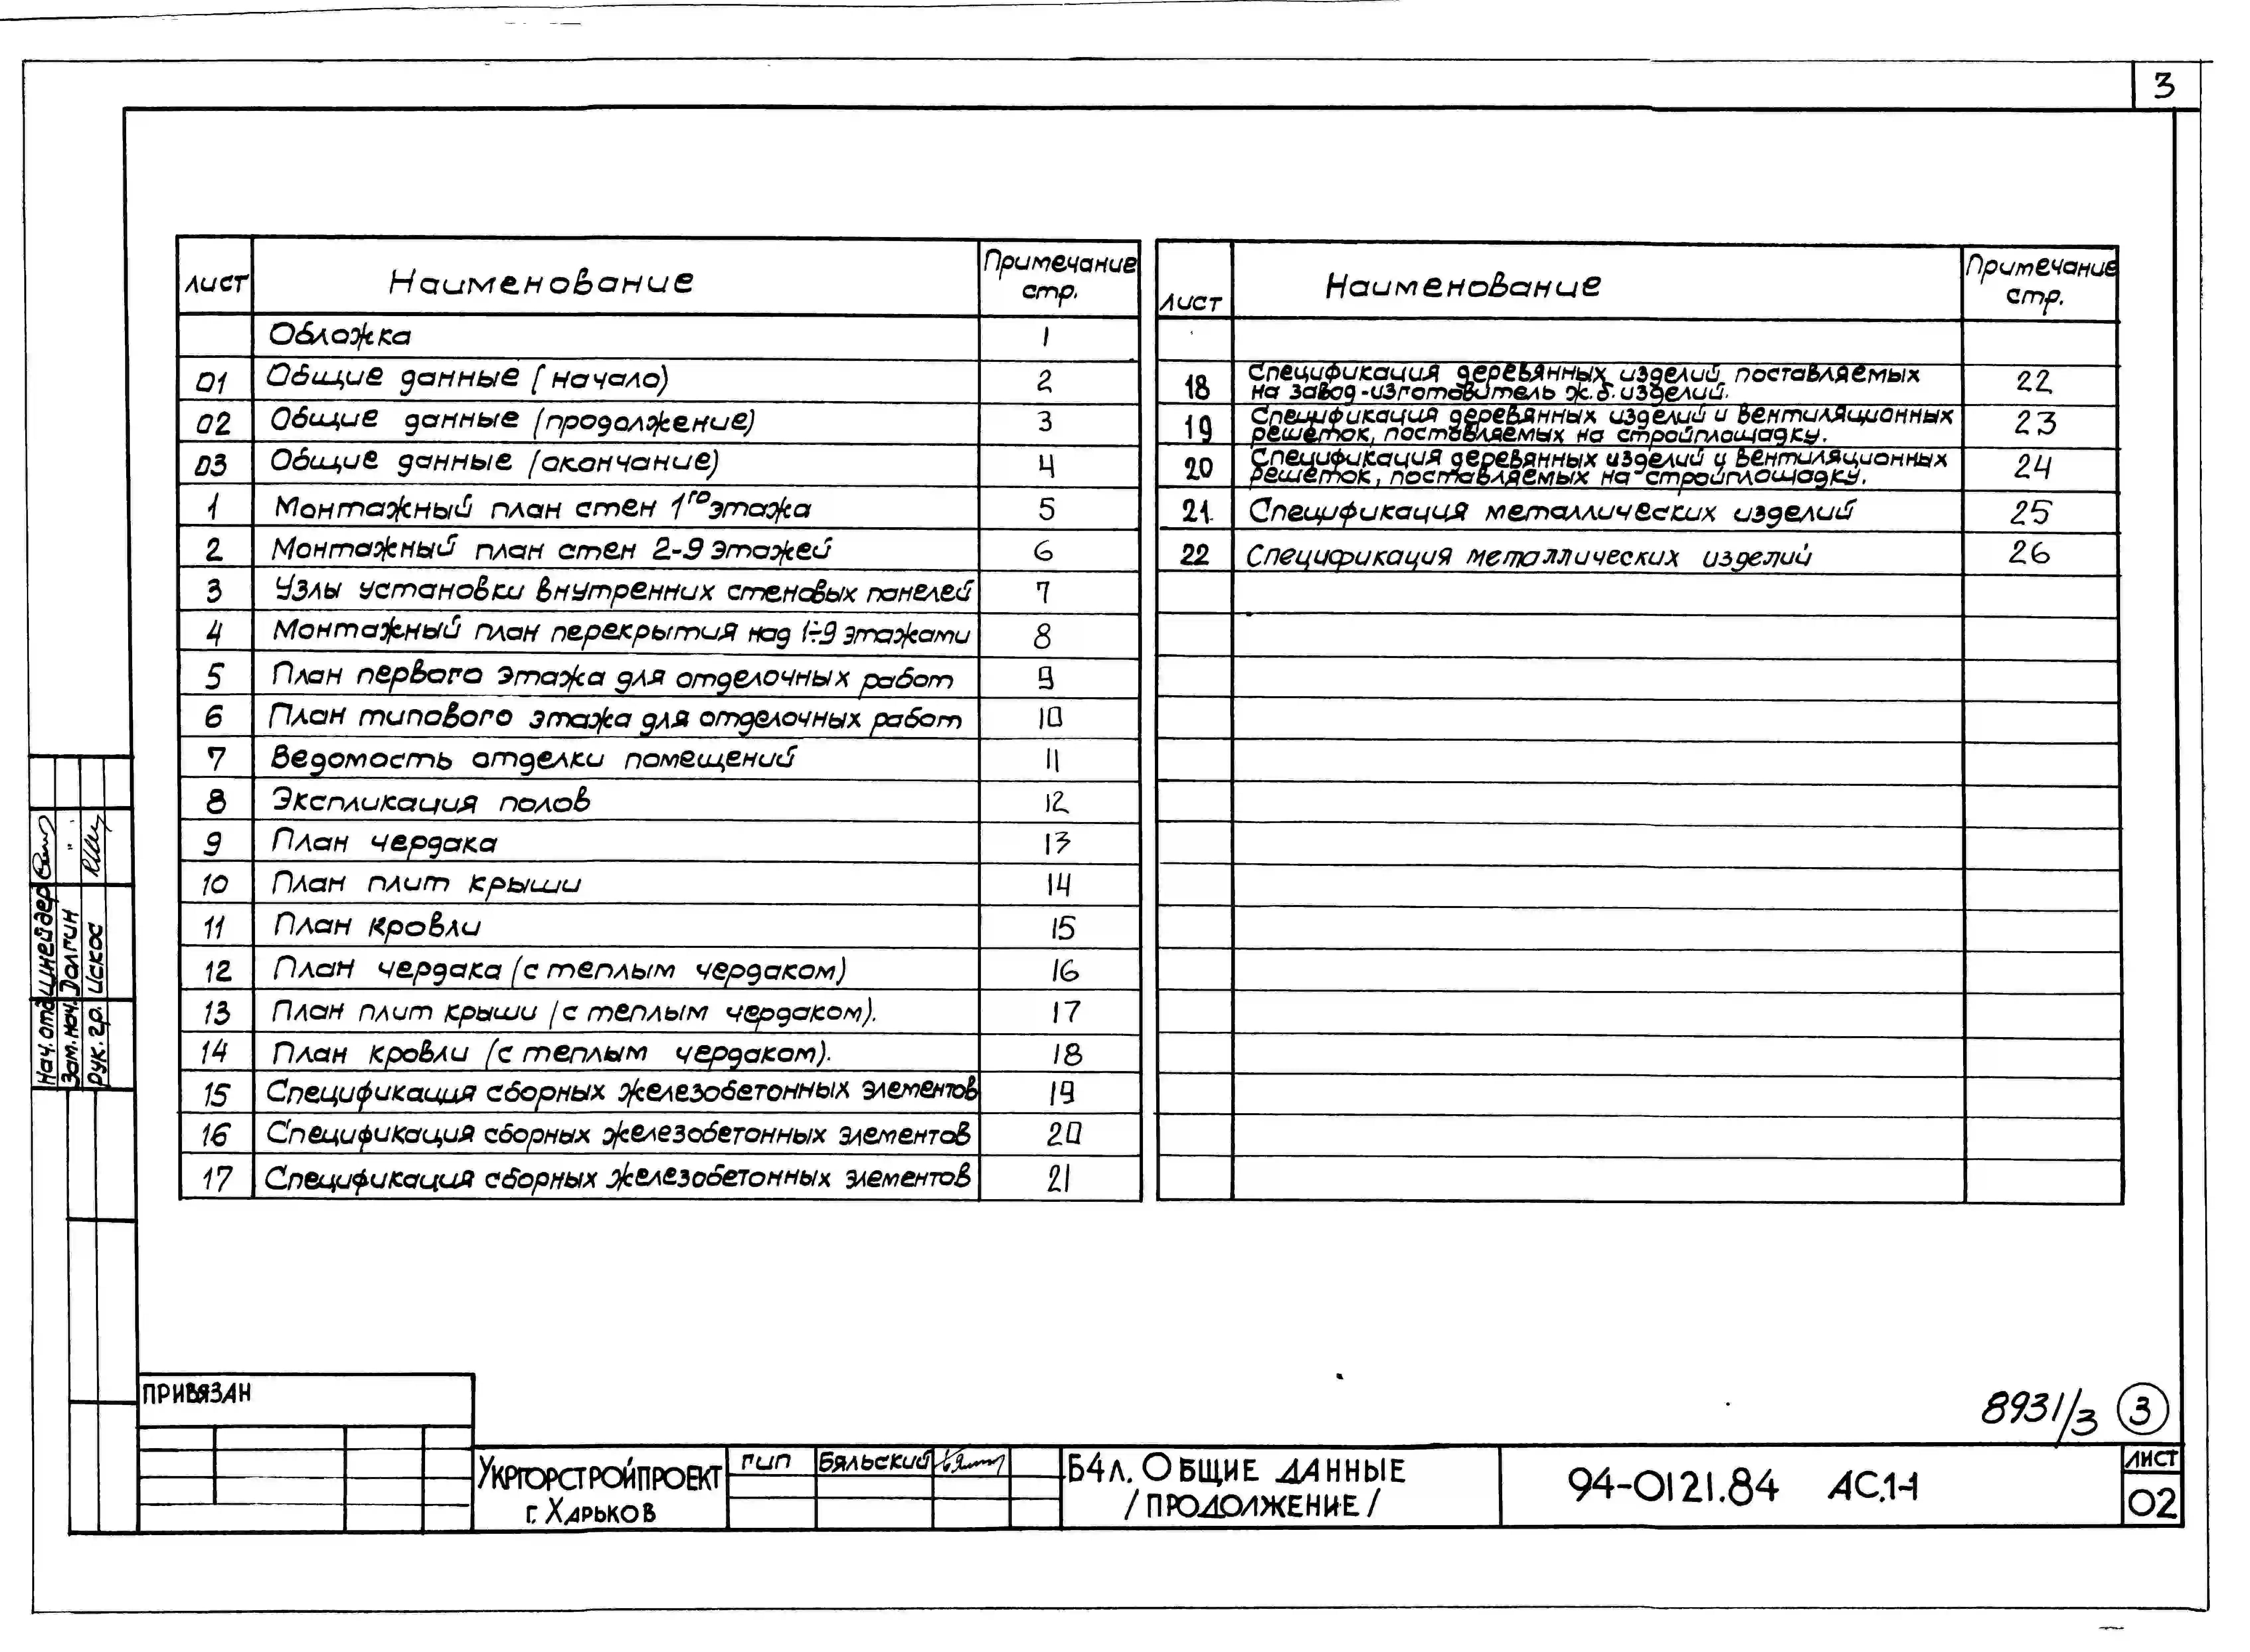 3
лист Наименование Примечание стр.
Обложка 1
01 Общие данные (начало) 2
02 Общие данные (продолжение) 3
03 Общие данные (окончание) 4
1 Монтажный план стен 1го этажа 5
2 Монтажный план стен 2-9 этажей 6
3 Узлы установки внутренних стеновых панелей 7
4 Монтажный план перекрытия над 1÷9 этажами 8
5 План первого этажа для отделочных работ 9
6 План типового этажа для отделочных работ 10
7 Ведомость отделки помещений 11
8 Экспликация полов 12
9 План чердака 13
10 План плит крыши 14
11 План кровли 15
12 План чердака (с теплым чердаком) 16
13 План плит крыши (с теплым чердаком). 17
14 План кровли (с теплым чердаком). 18
15 Спецификация сборных железобетонных элементов 19
16 Спецификация сборных железобетонных элементов 20
17 Спецификация сборных железобетонных элементов 21
лист Наименование Примечание стр.
18 Спецификация деревянных изделий, поставляемых
на завод-изготовитель ж.б. изделий. 22
19 Спецификация деревянных изделий и вентиляционных
решеток, поставляемых на стройплощадку. 23
20 Спецификация деревянных изделий и вентиляционных
решеток, поставляемых на стройплощадку. 24
21 Спецификация металлических изделий 25
22 Спецификация металлических изделий 26
Нач. отд. Шнейдер
Зам. нач. Долгин
Рук. гр. Искос
ПРИВЯЗАН
8931/3 3
Укргорстройпроект
г. Харьков
гип Бяльский
Б4л. Общие данные
/продолжение/
94-0121.84 АС.1-1
лист
02